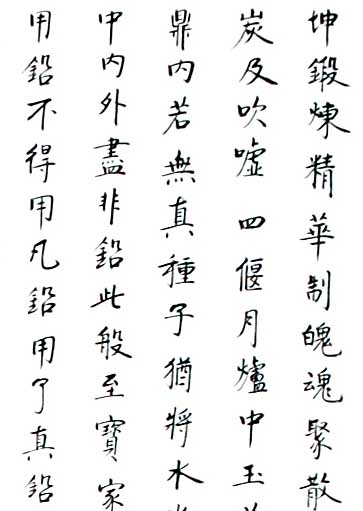 坤鍛煉精華制魄魂聚散
炭及吹噓 四 偃月爐中玉
鼎内若無真種子猶將水
中内外盡非鉛此般至寶家
用鉛不得用凡鉛用了真鉛